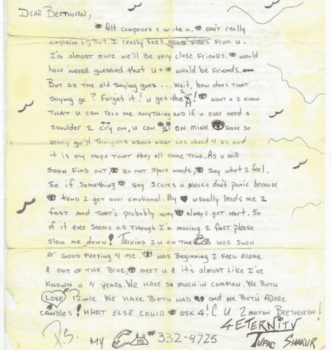 DEAR BEETHOVEN,
felt compelled 2 write u. can't really
explain it, but I really feel good vibes from u.
I'm almost sure we'll be very close friends. would
have never guessed that u + would be friends.
But as the old saying goes... Wait, how does that
saying go? Forget it! u get the! want u 2 know
that u can tell me anything and if u ever need a
shoulder 2 cry on, u can on mine. Have so
many good thoughts about what lies ahead 4 us and
it is my hope that they all come true. As u will
soon find out, do not spare words, say what I feel.
So if something say scares u please don't panic because
tend 2 get over emotional. My usually leads me 2
fast and that's probably why always get hurt. So
if it ever seems as though I'm moving 2 fast please
slow me down! Talking 2 u on the was such
a good feeling 4 me. was beginning 2 feel alone
& out of the blue, meet u & it's almost like I've
known u 4 years. We have so much in common. We both
LOVE! Since we have both had and we both adore
candles! What else could ask 4! C U 2 morrow BEETHOVEN!
4 ETERNITY
TUPAC SHAKUR
P.S. My # 332-4725